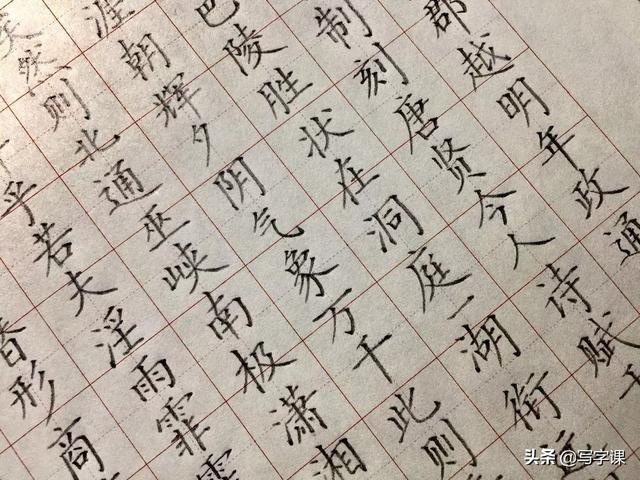 郡越明年政通
制刻唐贤今人诗赋于
巴陵胜状在洞庭一湖衔远
涯朝辉夕阴气象万千此则
矣然则北通巫峡南极潇湘
乎若夫淫雨霏霏
形商
头条 @写字课